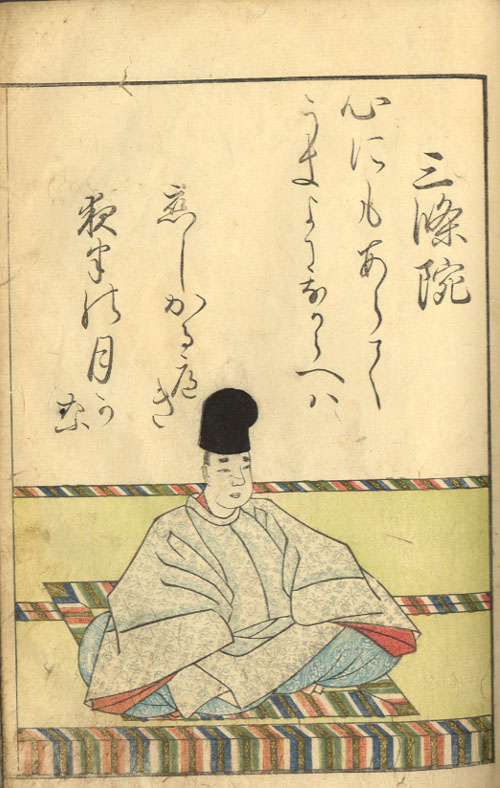 三條院
心にもあらて
うきよになからへハ
恋しかるへき
夜半の月か
な